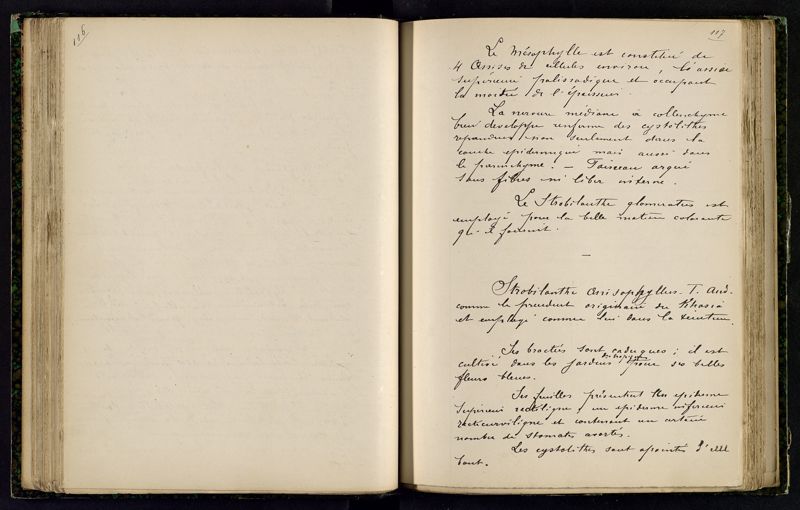 116
117
Le Mésophylle est constitué de
4 Assises de cellules environ, l'assise
supérieure palissadique et occupant
la moitié de l'épaisseur.
La nervure médiane à collenchyme
bien développé renferme des cystolithes
répandus non seulement dans la
couche epidermique mais aussi dans
le parenchyme. — Faisceau arqué
sans fibres ni liber interne.
Le Strobilanthe glomeratus est
employé pour la belle matière colorante
qu'il fournit.
—
Strobilanthe Anisophyllus. T. And.
comme le précédent originaire du Khasia
et employé comme lui dans la teinture.
Ses bractées sont caduques; il est
cultivé dans les jardins pour ses belles
fleurs bleues.
Ses feuilles présentent Un epiderme
supérieur rectiligne, un epiderme inférieur
recticurviligne et contenant un certain
nombre de stomates avortés.
Les cystolithes sont apointés d'un
bout.